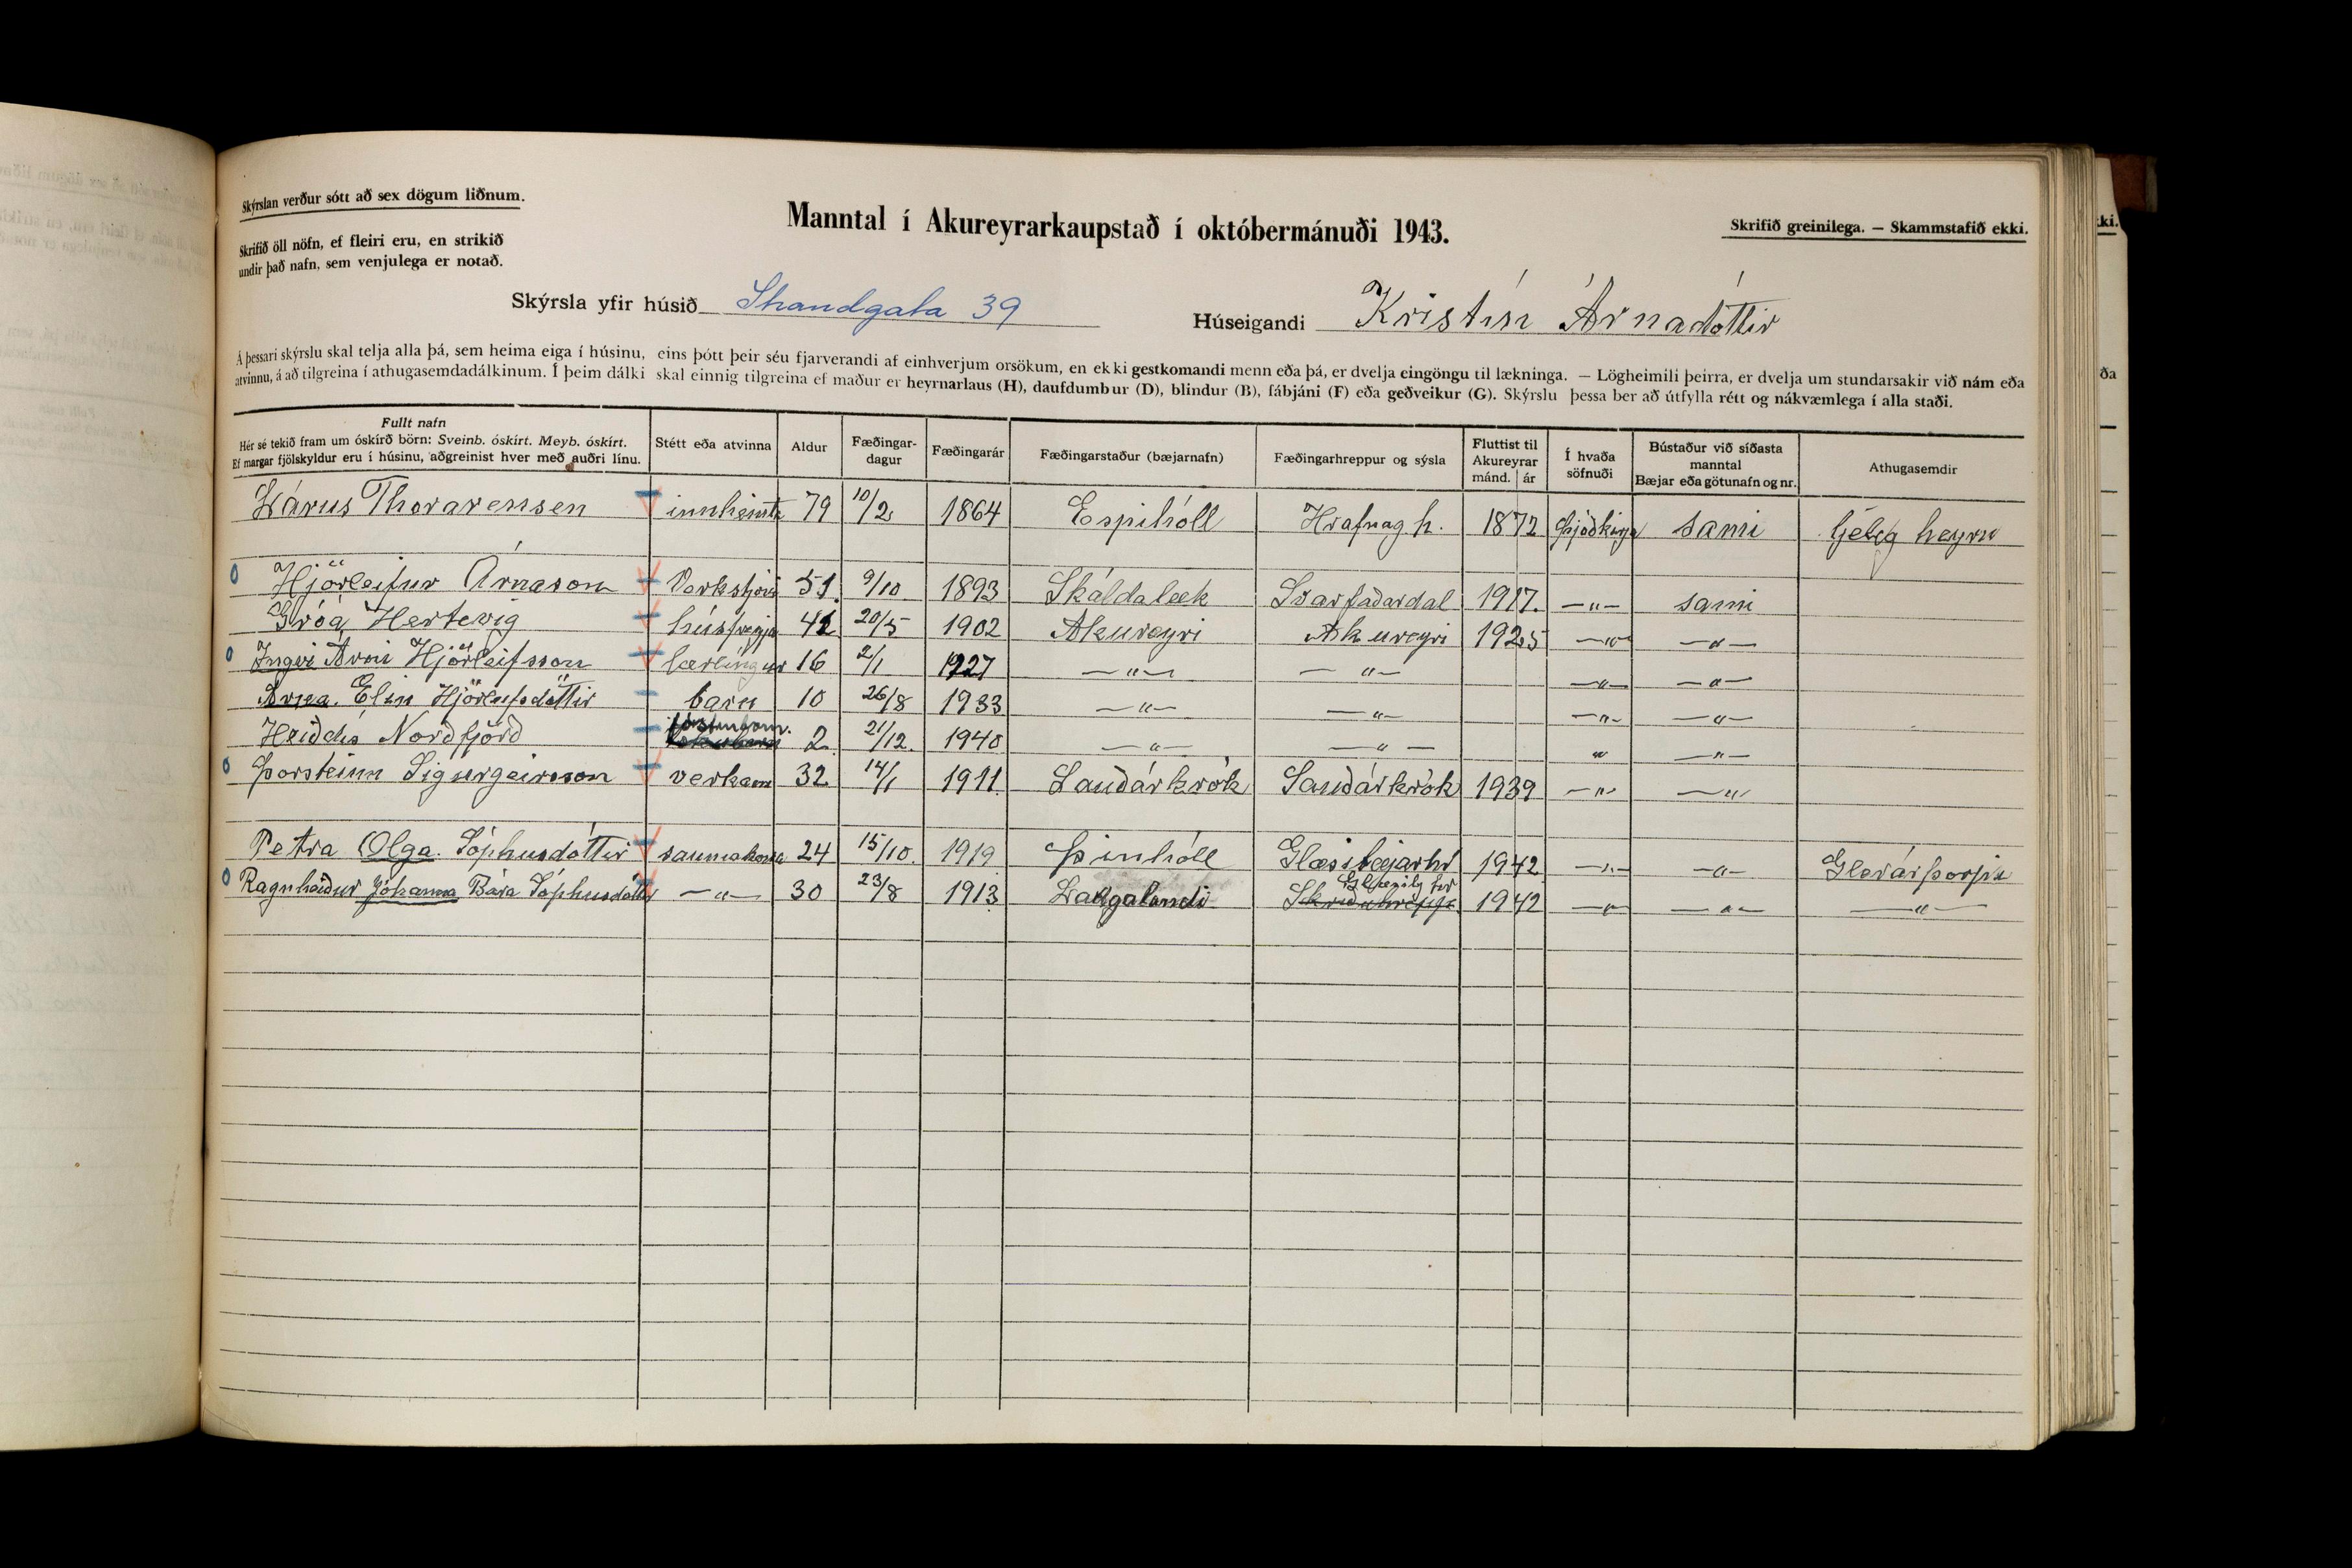 Skýrslan verður sótt að sex dögum liðnum.
Skrifið öll nöfn, ef fleiri eru, en strikið
undir það nafn, sem venjulega er notað.
Manntal í Akureyrarkaupstað í októbermánuði 1943.
Skrifið greinilega. — Skammstafið ekki.
Skýrsla yfir húsið Strandgata 39
Húseigandi Kristín Árnadóttir
Á þessari skýrslu skal telja alla þá, sem heima eiga í húsinu, eins þótt þeir séu fjarverandi af einhverjum orsökum, en ekki gestkomandi menn eða þá, er dvelja eingöngu til lækninga. — Lögheimili þeirra, er dvelja um stundarsakir við nám eða
atvinnu, á að tilgreina í athugasemdadálkinum. Í þeim dálki skal einnig tilgreina ef maður er heyrnarlaus (H), daufdumbur (D), blindur (B), fábjáni (F) eða geðveikur (G). Skýrslu þessa ber að útfylla rétt og nákvæmlega í alla staði.
Fullt nafn
Hér sé tekið fram um óskírð börn: Sveinb. óskírt. Meyb. óskírt.
Ef margar fjölskyldur eru í húsinu, aðgreinist hver með auðri línu.
Stétt eða atvinna
Aldur
Fæðingar-
dagur
Fæðingarár
Fæðingarstaður (bæjarnafn)
Fæðingarhreppur og sýsla
Fluttist til
Akureyrar
mánd. ár
Í hvaða
söfnuði
Bústaður við síðasta
manntal
Bæjar eða götunafn og nr.
Athugasemdir
Lárus Thorarensen innheimta 79 10/2 1864 Espihóll Hrafnag.h. 1872 Þjóðkirkja sami heyrn
Hjörleifur Árnason Verkstjóri 51 9/10 1893 Skáldalæk Svarfaðardal 1917. —"— sami
Gróa Hertervig húsfreyja 41 20/5 1902 Akureyri Akureyri 1925 —"— —"—
Ingvi Árni Hjörleifsson lærlingur 16 2/1 1927 —"— —"— —"— —"—
Arna Elín Hjörleifsdóttir barn 10 26/8 1933 —"— —"— —"— —"—
Heiddís Norðfjörð fósturbarn. 2 21/12. 1940 —"— —"— " —"—
Þorsteinn Sigurgeirsson verkam 32 14/1 1911 Sauðárkrók Sauðárkrók 1939 —"— —"—
Petra Olga. Sóphusdóttir saumakona 24 15/10. 1919 Þinhóll Glæsibæjarhr 1942 —"— —"— Glerárþorpi
Ragnheiður Jóhanna Bára Sóphusdóttir —"— 30 23/8 1913 Laugalandi Skriðuhreppi 1942 —"— —"— —"—